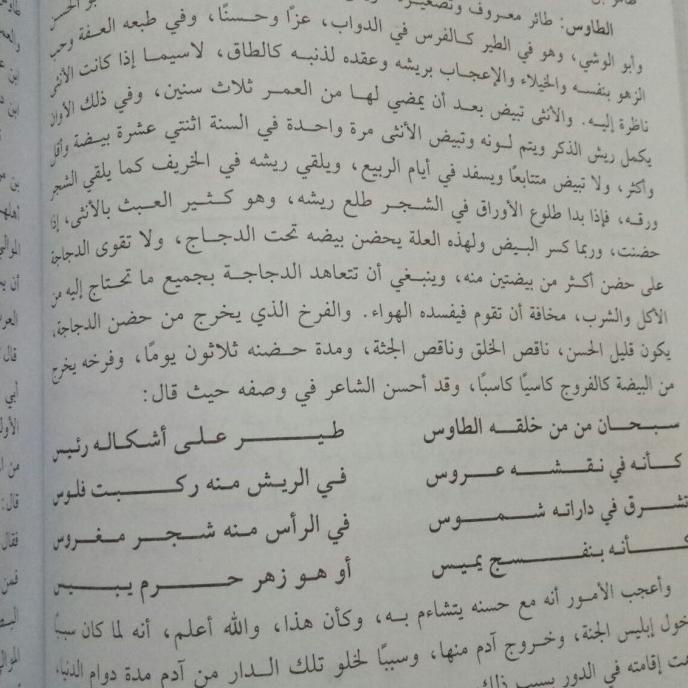 الطاوس: طائر معروف وتصغيره
وأبو الوشي، وهو في الطير كالفرس في الدواب، عزًا وحسنًا، وفي طبعه العفة وحب
الزهو بنفسه والخيلاء والإعجاب بريشه وعقده لذنبه كالطاق، لاسيما إذا كانت الأنثى
ناظرة إليه. والأنثى تبيض بعد أن يمضي لها من العمر ثلاث سنين، وفي ذلك الأوان
يكمل ريش الذكر ويتم لونه وتبيض الأنثى مرة واحدة في السنة اثنتي عشرة بيضة وأقل
وأكثر، ولا تبيض متتابعًا ويسفد في أيام الربيع، ويلقي ريشه في الخريف كما يلقي الشجر
ورقه، فإذا بدا طلوع الأوراق في الشجر طلع ريشه، وهو كثير العبث بالأنثى، إذا
حضنت، وربما كسر البيض ولهذه العلة يحضن بيضه تحت الدجاج، ولا تقوى الدجاجة
على حضن أكثر من بيضتين منه، وينبغي أن تتعاهد الدجاجة بجميع ما تحتاج إليه من
الأكل والشرب، مخافة أن تقوم فيفسده الهواء. والفرخ الذي يخرج من حضن الدجاجة،
يكون قليل الحسن، ناقص الخلق وناقص الجثة، ومدة حضنه ثلاثون يومًا، وفرخه يخرج
من البيضة كالفروج كاسيًا كاسبًا، وقد أحسن الشاعر في وصفه حيث قال:
سبحان من من خلقه الطاوس طير على أشكاله رئيس
كأنه في نقشه عروس في الريش منه ركبت فلوس
تشرق في داراته شموس في الرأس منه شجر مغروس
كأنه بنفسج يميس أو هو زهر حرم يبيس
وأعجب الأمور أنه مع حسنه يتشاءم به، وكأن هذا، والله أعلم، أنه لما كان سببًا
خول إبليس الجنة، وخروج آدم منها، وسببًا لخلو تلك الدار من آدم مدة دوام الدنيا،
إقامته في الدور بسبب ذلك